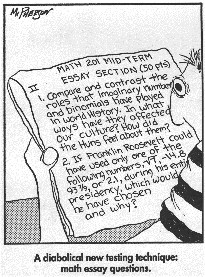 McPHERSON
MATH 201 MID-TERM
ESSAY SECTION (50 PTS)
II
1. Compare and contrast the
roles that imaginary numbers
and binomials have played
in world history. In what
ways have they affected
our culture? How did
the Huns feel about them?
2. If Franklin Roosevelt could
have used only one of the
following numbers, √7, -14.8,
93⅓, or 2.1, during his entire
presidency, which would
he have chosen
and why?
A diabolical new testing technique:
math essay questions.